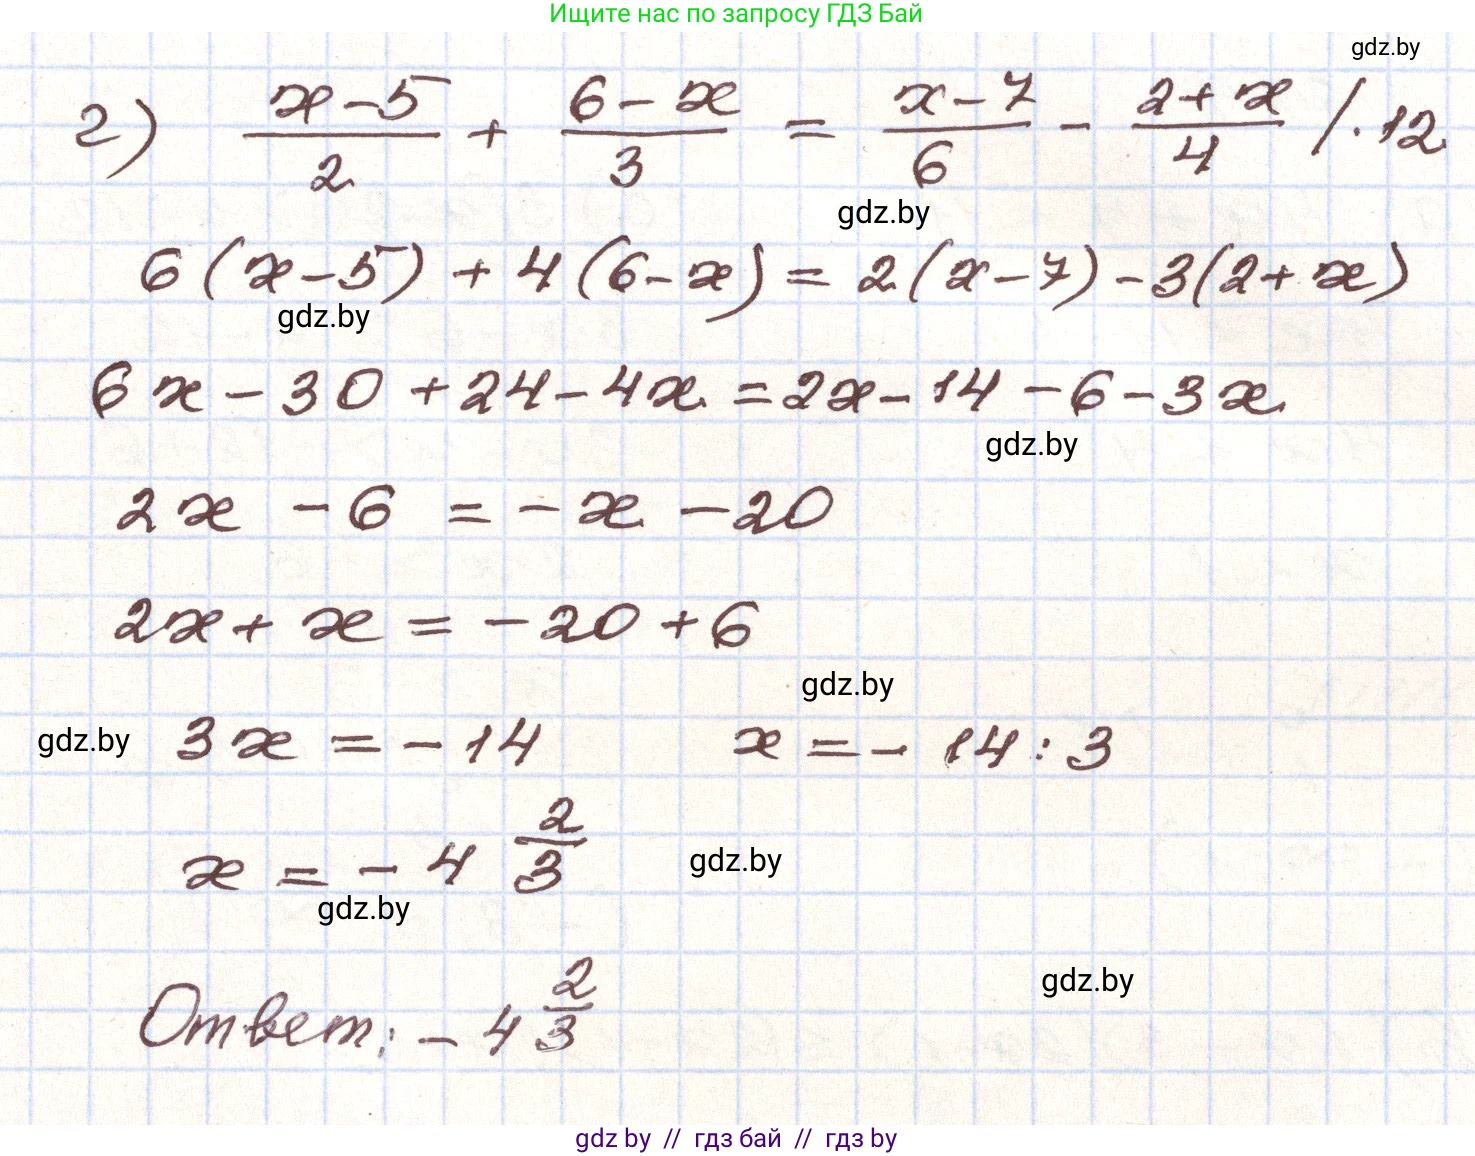 Ищите нас по запросу ГДЗ Бай
gdz.by
г) (x-5)/2 + (6-x)/3 = (x-7)/6 - (2+x)/4 /·12
gdz.by
6(x-5)+4(6-x)=2(x-7)-3(2+x)
gdz.by
6x-30+24-4x=2x-14-6-3x
gdz.by
2x -6 = -x -20
2x+x=-20+6
gdz.by
gdz.by 3x=-14 x=-14:3
x=-4 2/3 gdz.by
gdz.by
gdz.by
Ответ: -4 2/3
gdz by // гдз бай // гдз by